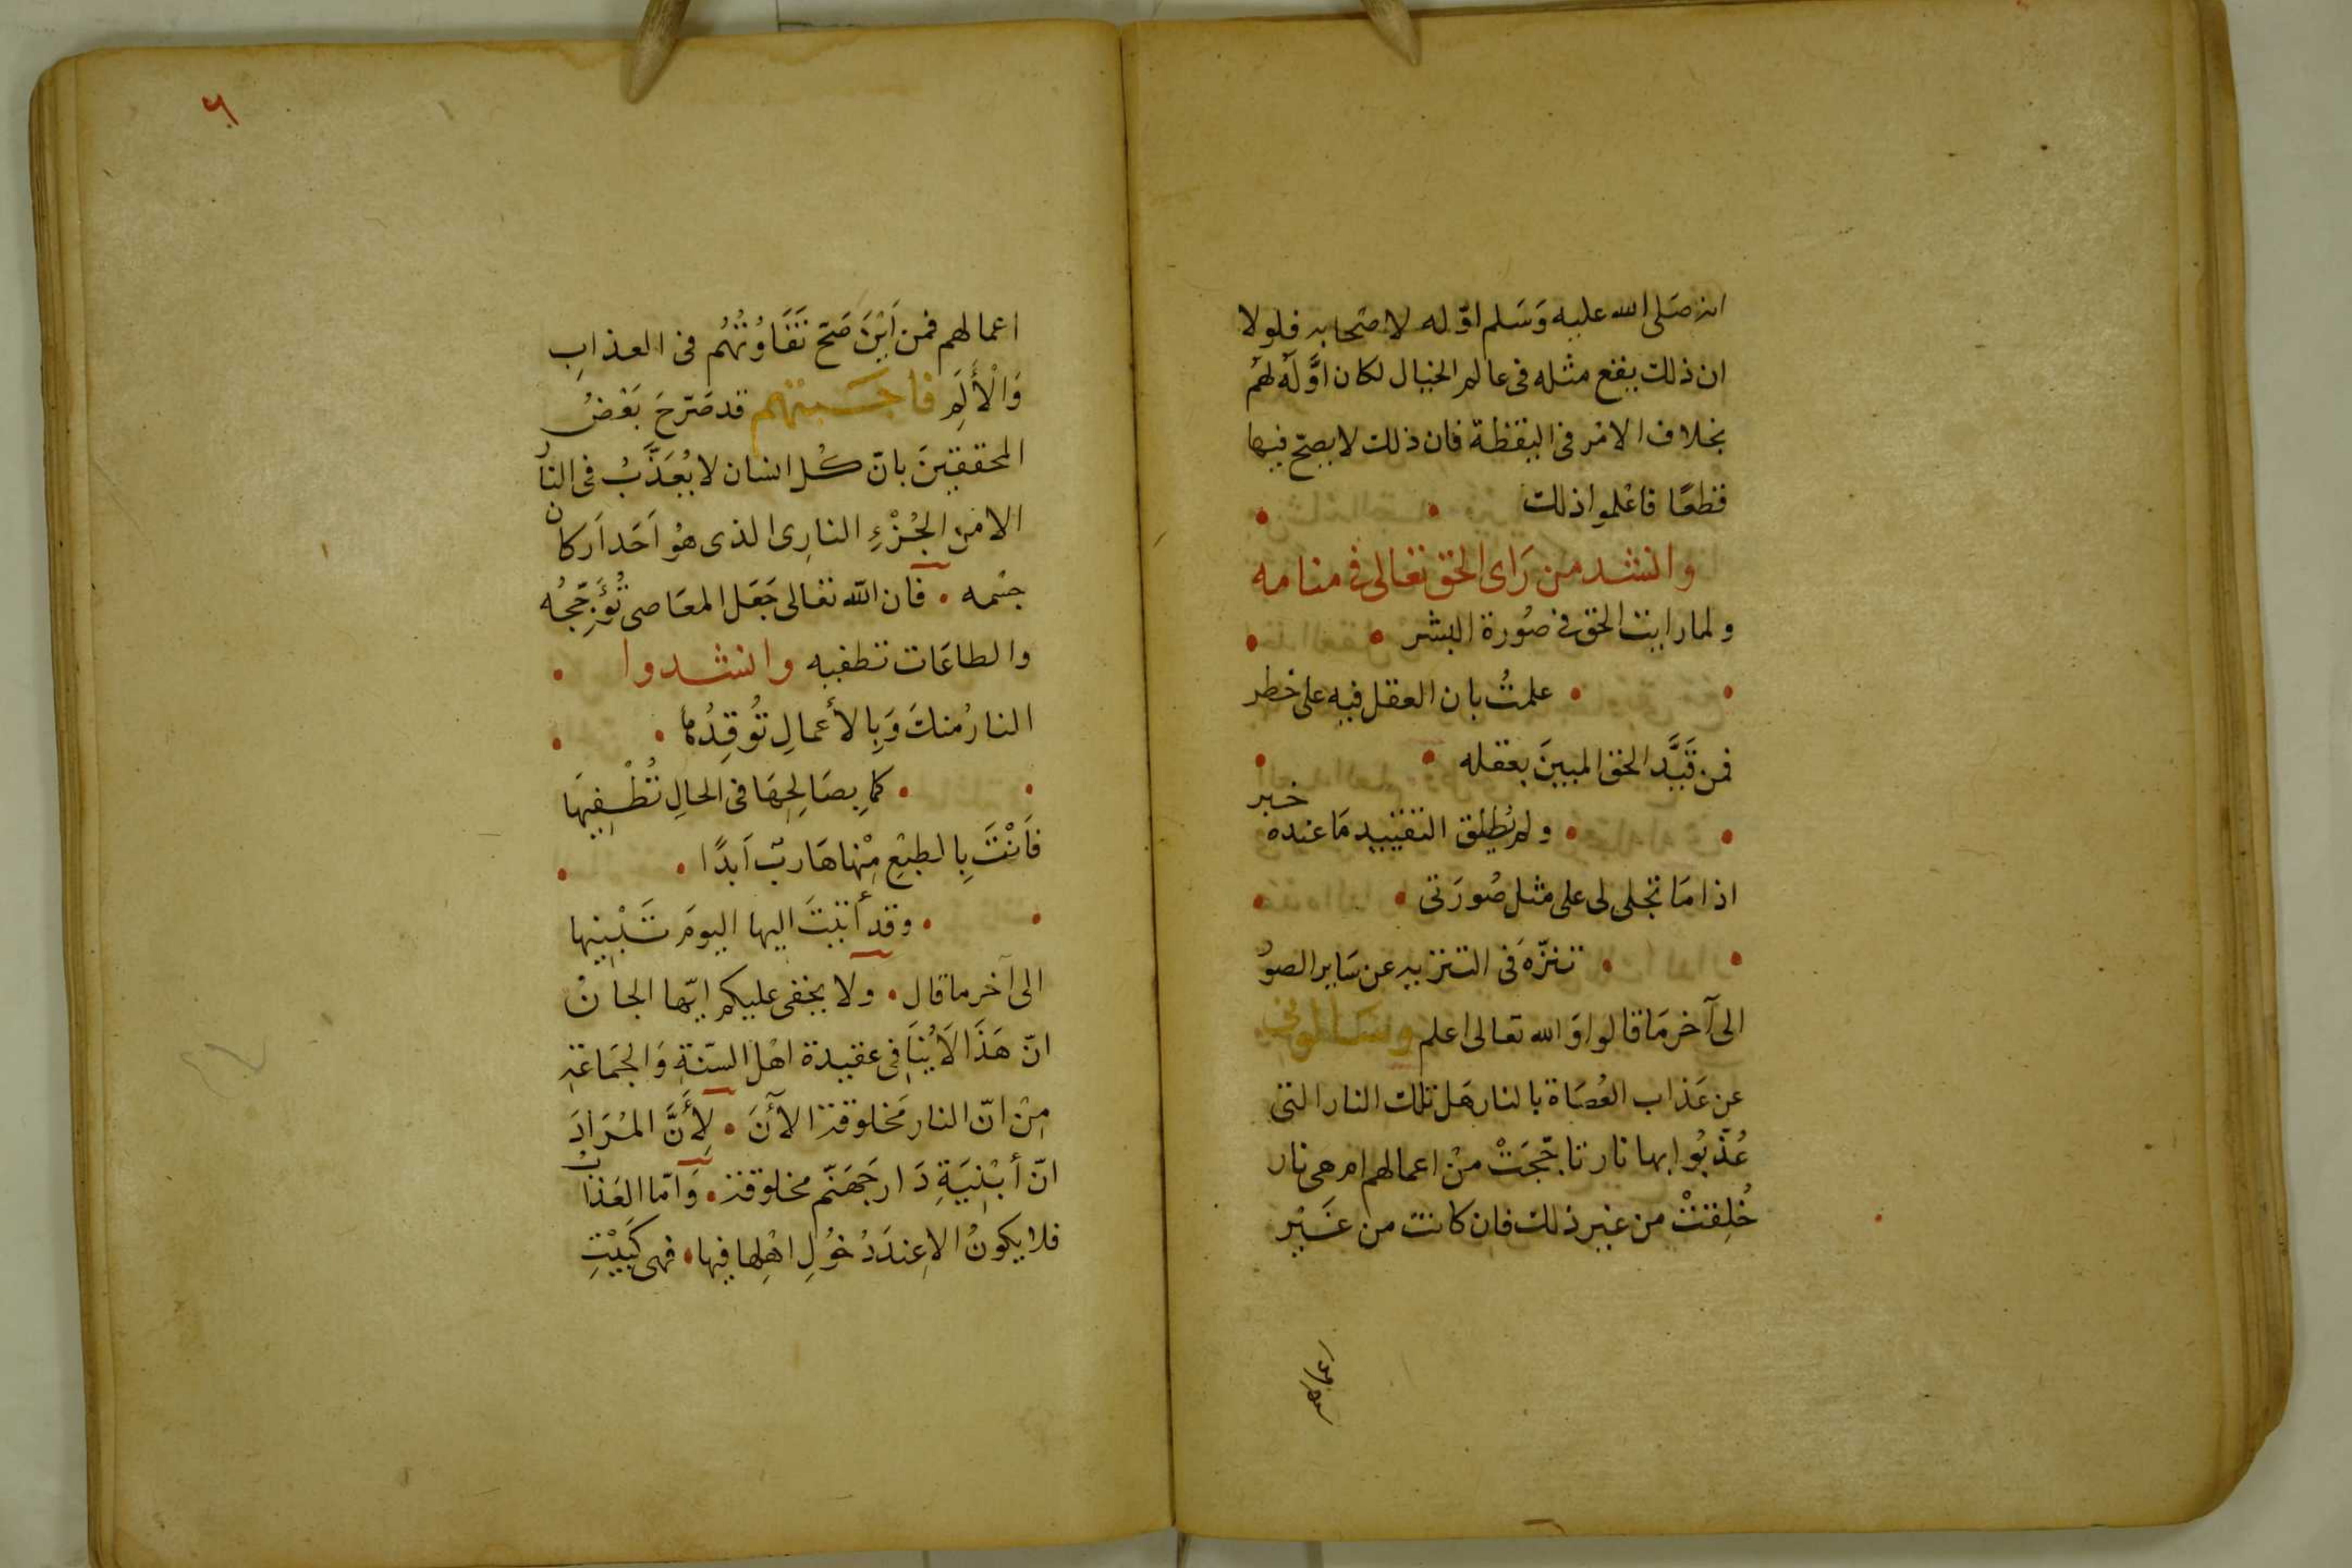 انه صَلى الله عليه وَسَلم اوّله لاصَحابه فلولا
ان ذلك يقع مثله فى عالم الخيال لكان اوَّلَه لهُم
بخلاف الامْر فى اليقظة فان ذلك لا يصحّ فيها
قطعًا فاعْلموا ذلك
وانشد من رَاى الحق تعالى فى منامه
ولما رايت الحق فى صُورة البشر
علمتُ بان العقل فيه على خطر
فمن قَيَّد الحق المبينَ بعقله
ولم يُطلِق التقييد مَا عنده خبر
اذا مَا تجلى لى على مثل صُورَتى
تنزّهَ فى التنزيه عن سَاير الصوُ
الى آخر مَا قالوا وَالله تعالى اعلم وسَألونى
عن عَذاب العُصَاة بالنار هَل تلك النار التى
عُذّبُوا بها نار تاجّجَتْ مِنْ اعمالهم ام هى نار
خُلِقتْ من غير ذلك فان كانت من غَيْر
اعمالهم فمن اَيْنَ صَحّ تَفَاوُتُهُم فى العذابِ
وَالْأَلَمِ فاجَبتهم قد صَرّحَ بَعْضُ
المحققِينَ بانّ كل انسان لا يُعَذَّبُ فى النار
الا مَن الجُزْءِ النارى الذى هوُ اَحَد اَركان
جسْمه • فان الله تعالى جَعَل المعَاصى تُؤَجِّجُه
والطاعَات تطفيه وانشدوا
النارُ منكَ وَبِالأَعمالِ تُوقِدُهَا
كما بِصَالِحِهَا فى الحالِ تُطْفِيهَا
فَاَنْتَ بِالطبْعِ مِنْها هَاربٌ اَبدًا
وقد أتيتَ اليها اليومَ تَبْنِيها
الى آخر ما قال • ولا يخفى عليكم ايّها الجانْ
انّ هَذَا لَا يُنَافى عقيدة اهْل السنّةِ وَالجَمَاعَةِ
مِنْ انّ النار مَخلوقة الآنَ • لِأَنَّ المُرَادَ
انّ أبْنِيَةِ دَار جَهَنّم مخلوقة • وَامّا العَذابُ
فلا يكونُ الا عِندَ دُخُولِ اهْلِها فيها • فهى كَبَيْتِ